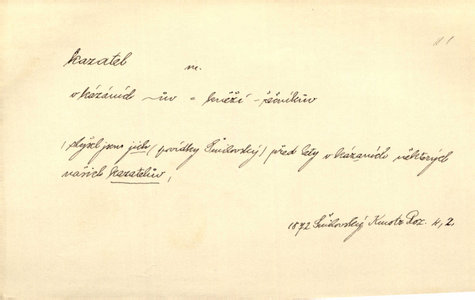 kazatel m.
v kázáních ~ův = kněží - řečníkův
(slyšel jsem jich (povídky Šmilovský) před lety v kázaních některých
našich kazatelův,
1872 Šmilovský Kmotr Roz. 4, 2.